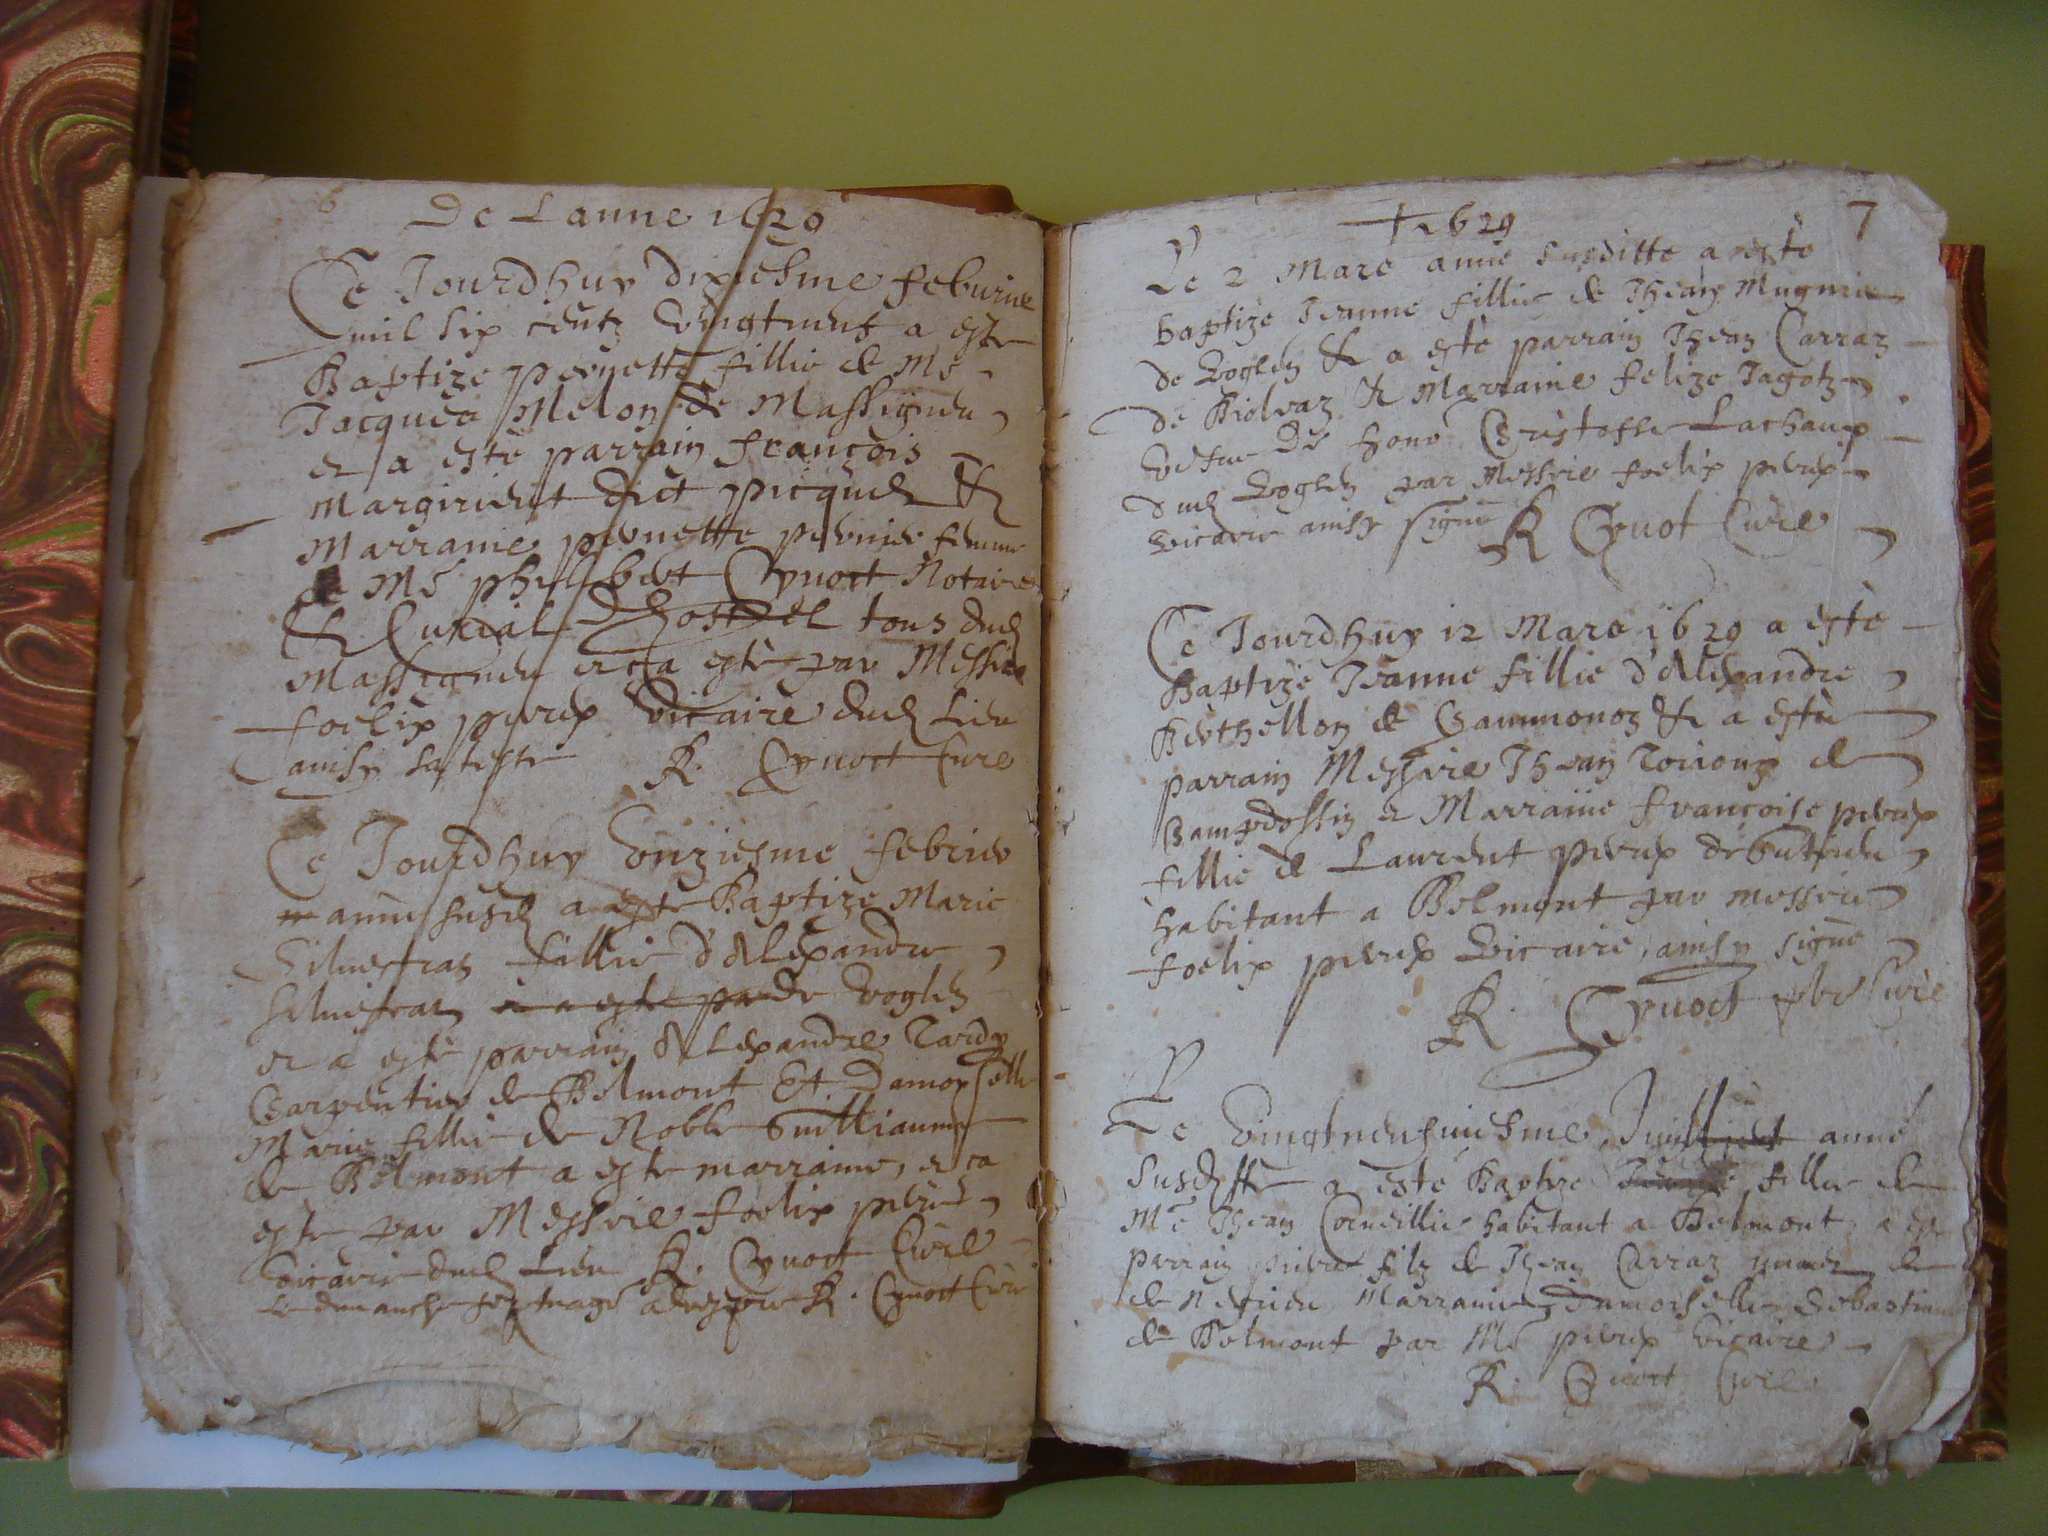 6
De Lanne 1629
Ce Jourdhuy dixiesme feburier
mil six centz vingtneuf a este
Baptize pernette fillie de Me
Jacques Melon de Massigneu
et a este parrain françois
Margirient dict picquet &
Marraine pernette pernier femme
de Me philibert Cynoct Notaire
& Curial tous dud
Massigneu et ca este par Messire
foelix pereux vicaire dud Lieu
ainsy sa teste R. Cynoct Cure
Ce Jourdhuy onziesme febrier
anne susd a este Baptize Marie
Siluestraz fillie d'Alexandre
siluestraz a este de Voglen
et a este parrain Alexandre Tardy
Charpentier de Belmont Et damoyselle
Marie fillie de Noble Guilliaume
de Belmont a este marraine, et ca
este par Messire foelix pereux
vicaire dud Lieu R. Cynoct Cure
Le dimanche R. Cynoct Cure
1629
7
Le 2 Mars anne susditte a este
baptize Jeanne fillie de Jhean Mugnier
de Voglen & a este parrain Jhean Carraz
de & Marraine felize Jagotz
vefue De hono Christofle Lachaup
dud Voglen par Messire foelix pereux
vicaire ainsy signe R Cynot Cure
Ce Jourdhuy 12 Mars 1629 a este
Baptize Jeanne fillie d'Alexandre
Berthellon de Chammonoz & a este
parrain Messire Jhean de
Champdossin et Marraine françoise pereux
fillie de Laurent pereux
habitant a Belmont par messire
foelix pereux vicaire, ainsy signe
R. Cynoct pbr Cure
Le Vingtneufuiesme Juilliet anne
Susditte a este Baptize fillie de
Me Jhean Corneillie habitant a Belmont, a este
parrain pierre filz de Jhean Carraz de
de Marraine, damoiselle Sebastiane
de Belmont par Me pereux vicaire
R. Cynoct Cure